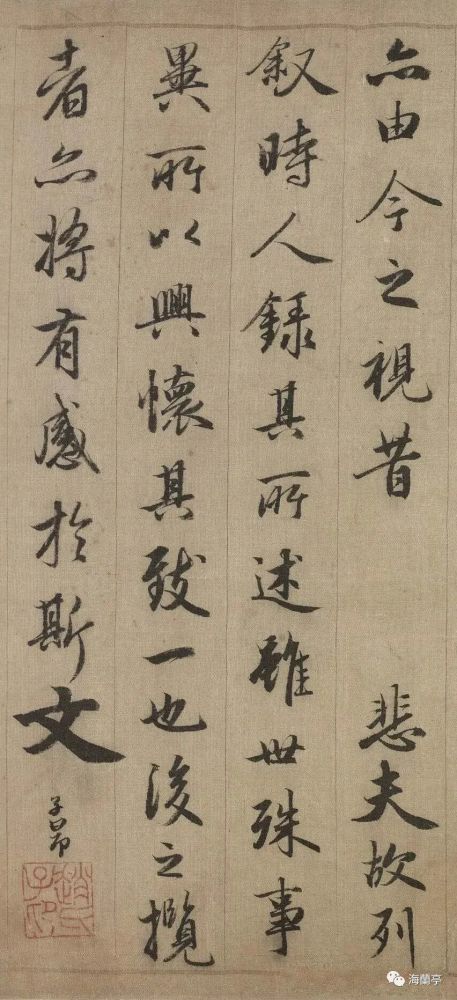 亦由今之視昔 悲夫故列
叙時人録其所述雖世殊事
異所以興懷其致一也後之攬
者亦將有感於斯文
子昂
趙氏子昂
海蘭亭